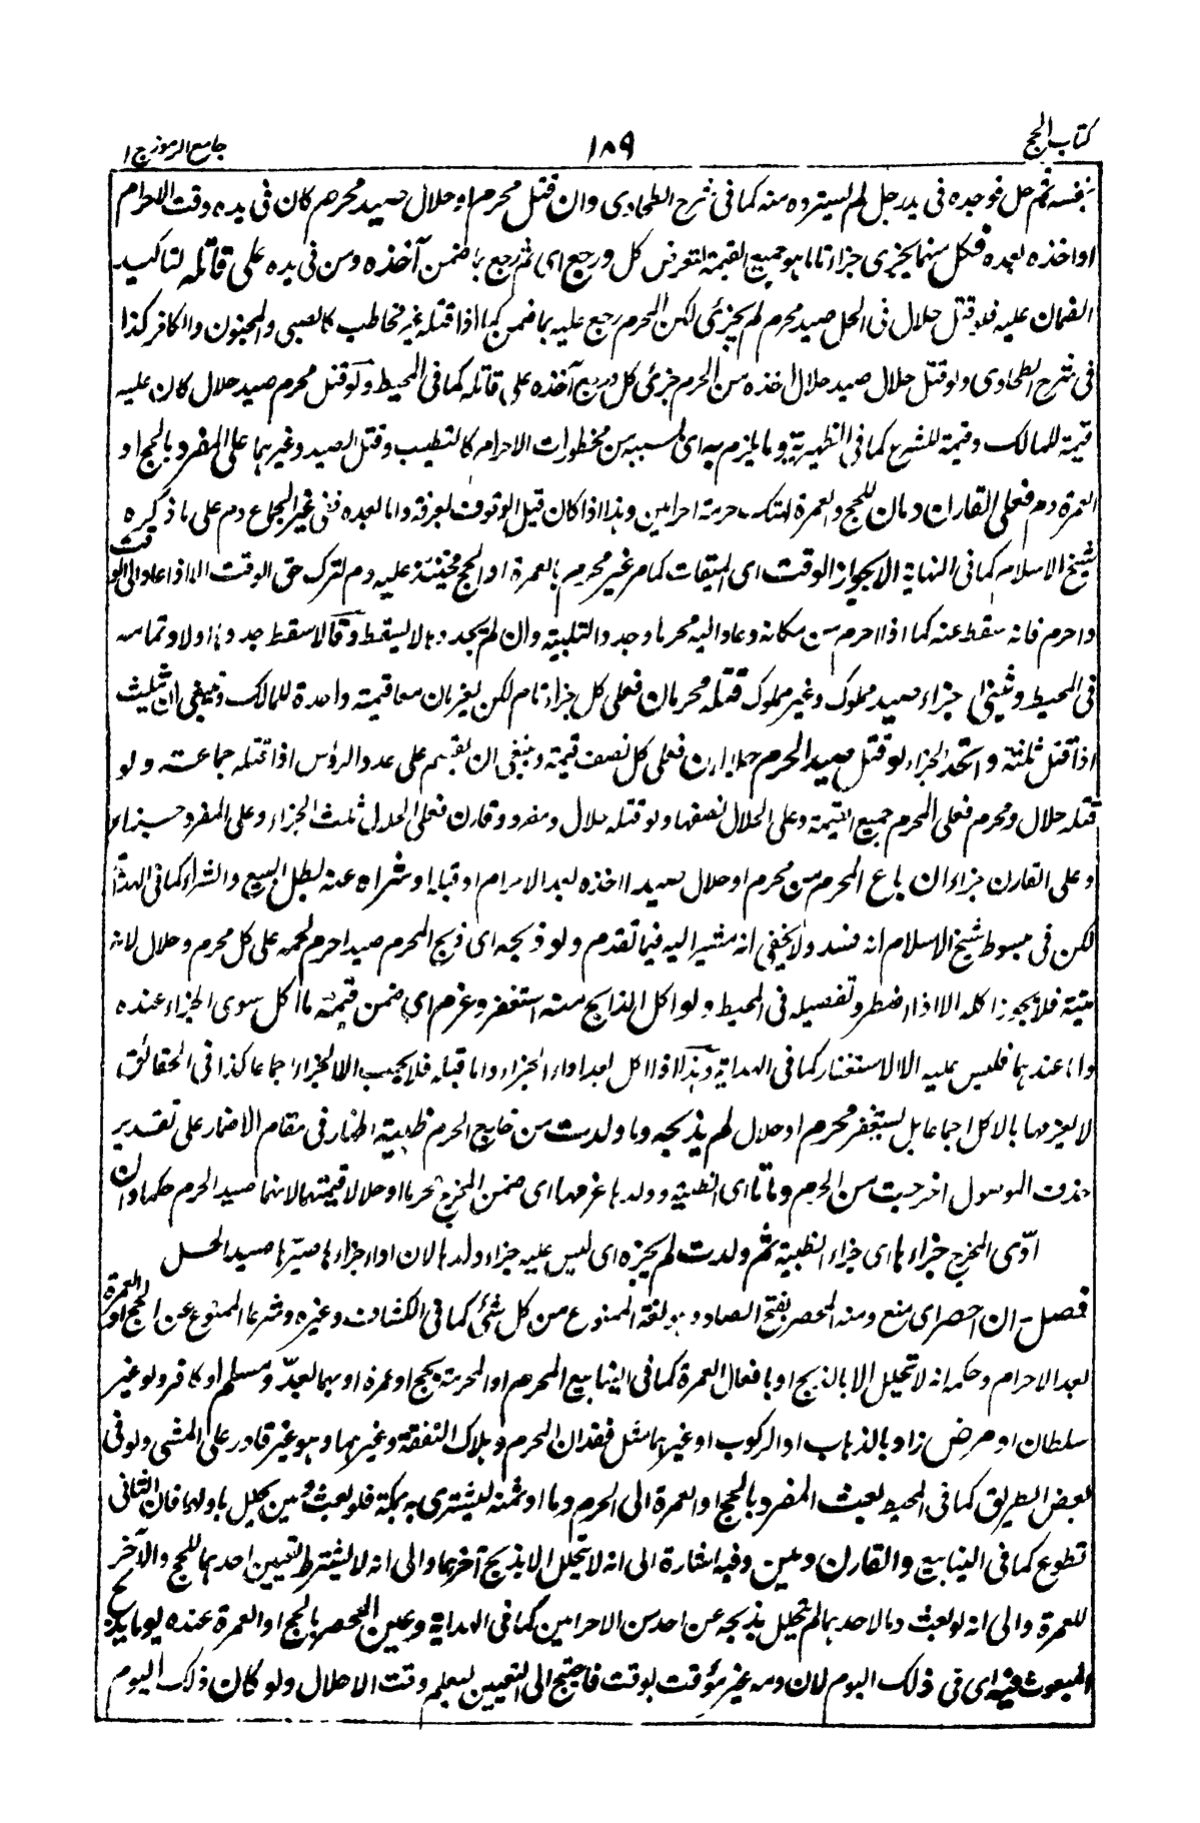 كتاب الحج
١٨٩
جامع الرموز ج ١
بنفسه ثم حل فوجده فى يد رجل لم يسترده منه كما فى شرح الطحاوى وان قتل محرم او حلال صيد محرم كان فى يده وقت الاحرام
او اخذه بعده فكل منهما يجزى جزاء تاما هو جميع القيمة لتعرض كل ورجع اى ثم رجع بما ضمن آخذه ومن فى يده على قاتله لتاكيد
الضمان عليه فلو قتل حلال فى الحل صيد محرم لم يجزئ لكن المحرم رجع عليه بما ضمن كما اذا قتله غير مخاطب كالصبى والمجنون والكافر كذا
فى شرح الطحاوى ولو قتل حلال صيد حلال اخذه من الحرم جزئ كل ورجع آخذه على قاتله كما فى المحيط ولو قتل محرم صيد حلال كان عليه
قيمة للمالك وقيمة للشرع كما فى الظهيرية وما يلزم به اى بسببه من محظورات الاحرام كالتطيب وقتل الصيد وغيرهما على المفرد بالحج او
العمرة دم فعلى القارن دمان للحج والعمرة لهتك حرمة احرامين وهذا اذا كان قبل الوقوف بعرفة واما بعده ففى غير الجماع دم على ما ذكره
شيخ الاسلام كما فى النهاية الا بجواز الوقت اى الميقات كما مر غير محرم بالعمرة او الحج فحينئذ عليه دم لترك حق الوقت الا اذا عاد الى الوقت
واحرم فانه سقط عنه كما اذا احرم من مكانه وعاد اليه محرما وجدد التلبية وان لم يجدد ها لا يسقط وقالا سقط جدد ها اولا وتمامه
فى المحيط وثنى جزاء صيد مملوك وغير مملوك قتله محرمان فعلى كل جزاء تام لكن يغرمان معا قيمة واحدة للمالك وينبغى ان يثلث
اذا قتل ثلثة واتحد الجزاء لو قتل صيد الحرم حلالان فعلى كل نصف قيمة وينبغى ان يقسم على عدد الرؤس اذا قتله جماعة ولو
قتله حلال ومحرم فعلى المحرم جميع القيمة وعلى الحلال نصفها ولو قتله حلال ومفرد وقارن فعلى الحلال ثلث الجزاء وعلى المفرد جزاء
وعلى القارن جزاءان باع المحرم من محرم او حلال صيدا اخذه بعد الاحرام او قبله او شراه عنه بطل البيع والشراء كما فى الهداية
لكن فى مبسوط شيخ الاسلام انه فسد ولا يخفى انه مشير اليه فيما تقدم ولو ذبحه اى ذبح المحرم صيدا حرم لحمه على كل محرم وحلال لانه
ميتة فلا يجوز اكله الا اذا اضطر وتفصيله فى المحيط ولو اكل الذابح منه استغفر وغرم اى ضمن قيمة ما اكل سوى الجزاء عنده
واما عندهما فليس عليه الا الاستغفار كما فى الهداية وهذا اذا اكل بعد اداء الجزاء واما قبله فلا يجب الا الجزاء اجماعا كذا فى الحقائق
لا يغرمها بالاكل اجماعا بل يستغفر محرم او حلال لم يذبحه وما ولدت من خارج الحرم ظبية اظهار فى مقام الاضمار على تقدير
حذف الموصول اخرجت من الحرم وماتا اى الظبية وولدها غرمها اى ضمن المخرج محرما او حلالا قيمتهما لانهما صيد الحرم حكما وان
ادّى المخرج جزاءها اى جزاء الظبية ثم ولدت لم يجزه اى ليس عليه جزاء ولدها لان اداء جزاءها صيّرها صيد الحل
فصل ان احصر اى منع ومنه المحصر بفتح الصاد وهو لغة الممنوع من كل شئ كما فى الكشاف وغيره وشرعا الممنوع عن الحج او العمرة
بعد الاحرام وحكمه انه لا تحلل الا بالذبح او بافعال العمرة كما فى الينابيع المحرم او المحرمة بحج او عمرة او بهما بعدوّ مسلم او كافر ولو غير
سلطان او مرض زاد بالذهاب او الركوب او غيرهما مثل فقدان المحرم وهلاك النفقة وغيرهما وهو غير قادر على المشى ولو فى
بعض الطريق كما فى المحيط بعث المفرد بالحج او العمرة الى الحرم دما او ثمنه ليشترى به بمكة فلو بعث دمين تحلل باولهما فان الثانى
تطوع كما فى الينابيع والقارن دمين وفيه اشارة الى انه لا تحلل الا بذبح آخرهما والى انه لا يشترط تعيين احدهما للحج والآخر
للعمرة والى انه لو بعث دما لاحدهما لم تحلل بذبحه عن احد من الاحرامين كما فى الهداية وعين المحصر بالحج او العمرة عنده يوما يذبح
المبعوث فيه اى فى ذلك اليوم لان دمه غير مؤقت بوقت فاحتيج الى التعيين ليعلم وقت الاحلال ولو كان ذلك اليوم